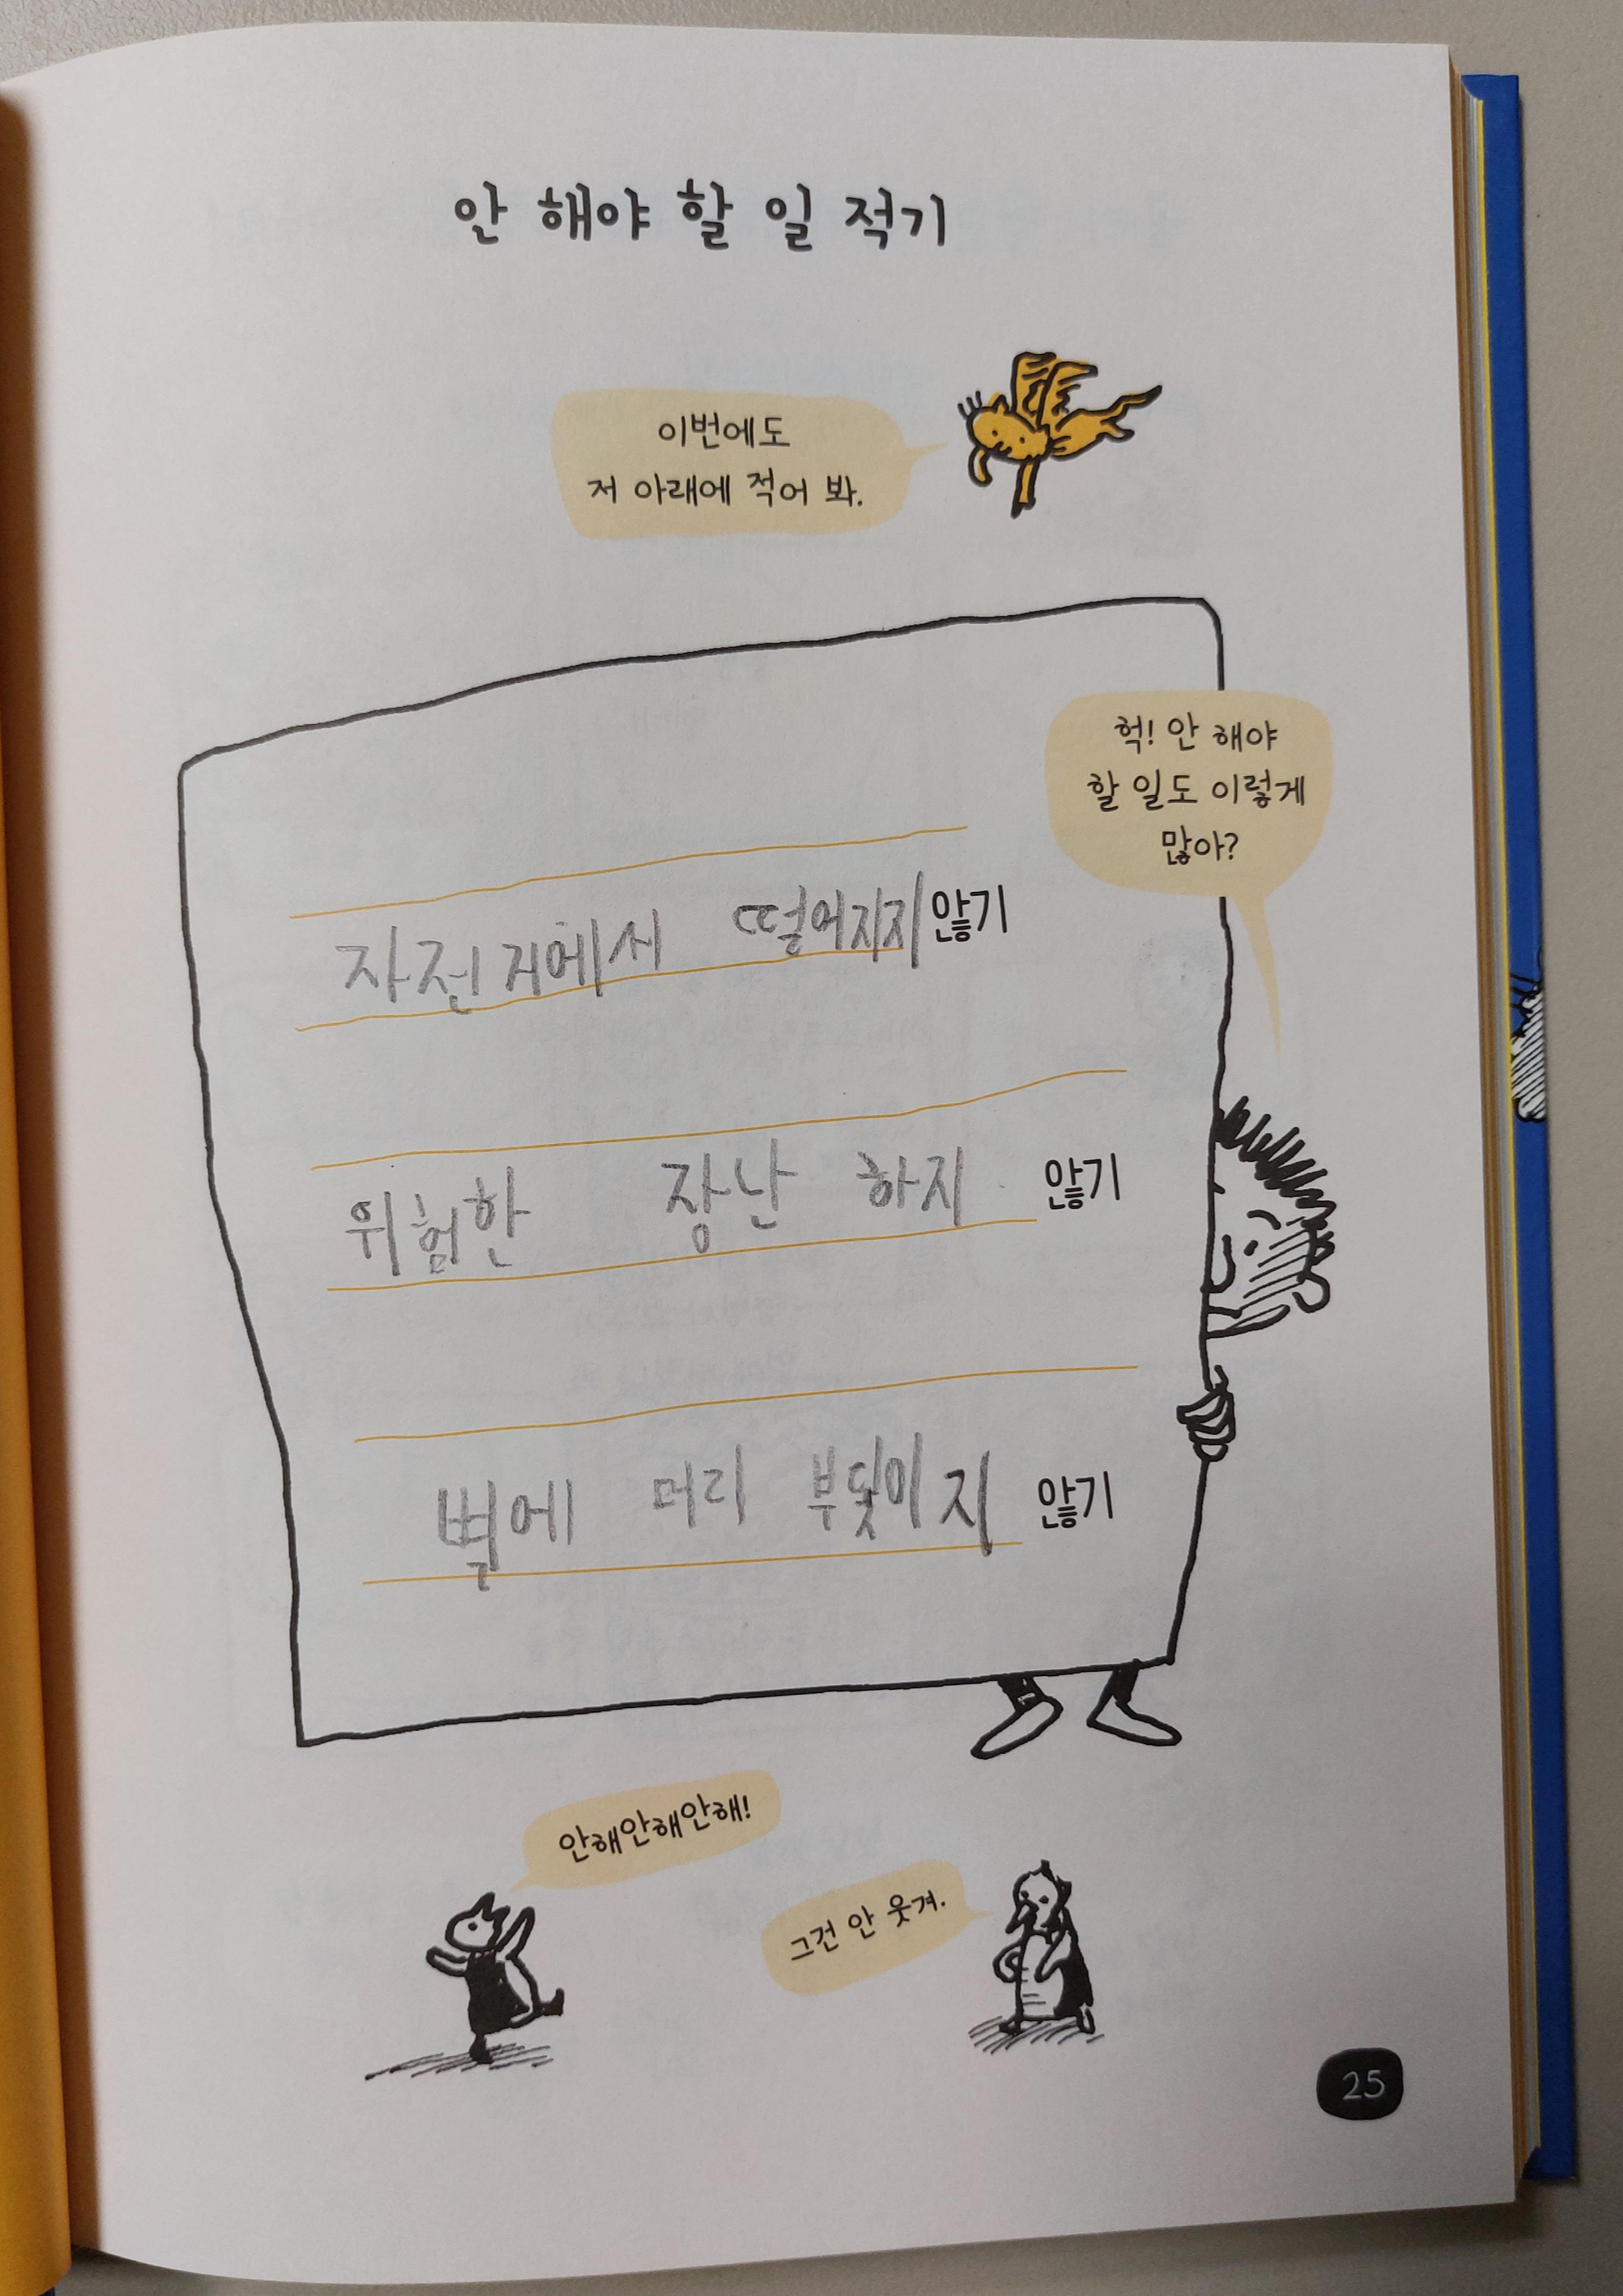 안 해야 할 일 적기
이번에도
저 아래에 적어 봐.
헉! 안 해야
할 일도 이렇게
많아?
자전거에서 떨어지지 않기
위험한 장난 하지 않기
벽에 머리 부딪이지 않기
안해안해안해!
그건 안 웃겨.
25